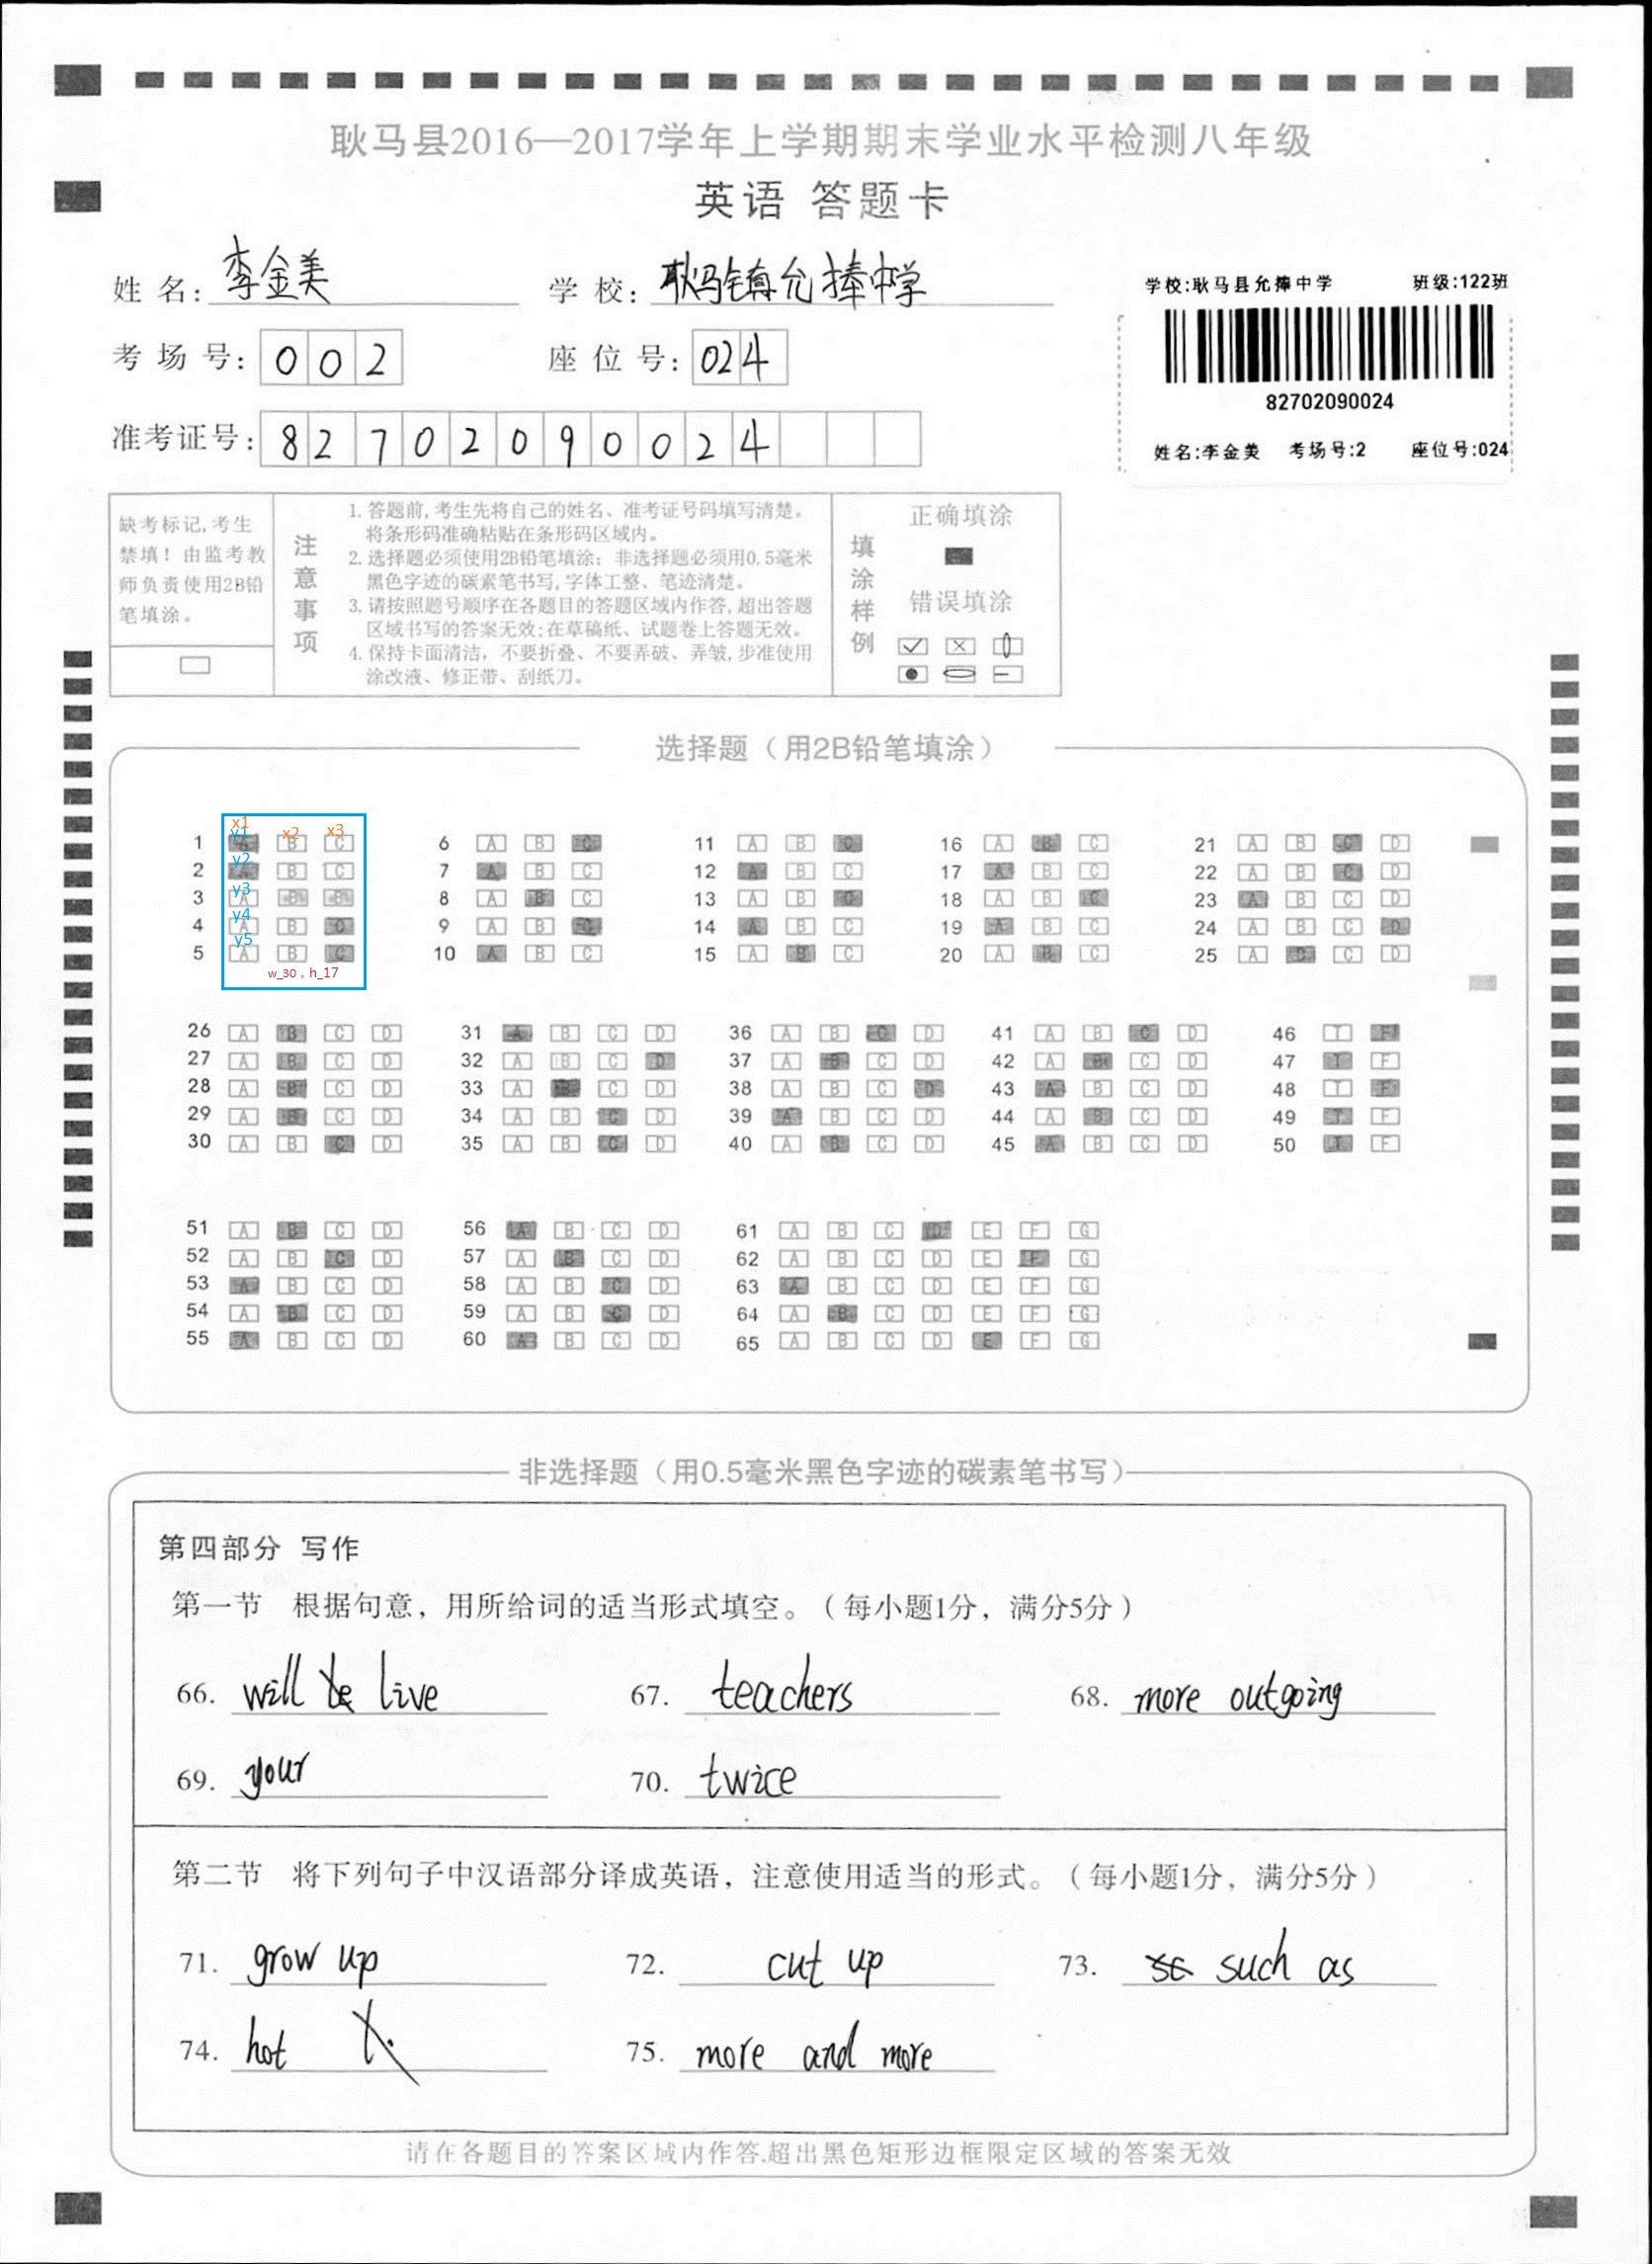 耿马县2016—2017学年上学期期末学业水平检测八年级
英语 答题卡
姓 名: 李金美 学 校: 耿马镇允捧中学
考 场 号: 0 0 2 座 位 号: 024
准考证号: 8 2 7 0 2 0 9 0 0 2 4
学校:耿马县允捧中学 班级:122班
82702090024
姓名:李金美 考场号:2 座位号:024
缺考标记,考生
禁填！由监考教
师负责使用2B铅
笔填涂。
注意事项
1. 答题前,考生先将自己的姓名、准考证号码填写清楚。
将条形码准确粘贴在条形码区域内。
2. 选择题必须使用2B铅笔填涂；非选择题必须用0.5毫米
黑色字迹的碳素笔书写,字体工整、笔迹清楚。
3. 请按照题号顺序在各题目的答题区域内作答,超出答题
区域书写的答案无效;在草稿纸、试题卷上答题无效。
4. 保持卡面清洁，不要折叠、不要弄破、弄皱,步准使用
涂改液、修正带、刮纸刀。
填涂样例
正确填涂
错误填涂
选择题（用2B铅笔填涂）
x1 x2 x3
y1
y2
y3
y4
y5
w_30，h_17
1 A B C 6 A B C 11 A B C 16 A B C 21 A B C D
2 A B C 7 A B C 12 A B C 17 A B C 22 A B C D
3 A B B 8 A B C 13 A B C 18 A B C 23 A B C D
4 A B C 9 A B C 14 A B C 19 A B C 24 A B C D
5 A B C 10 A B C 15 A B C 20 A B C 25 A B C D
26 A B C D 31 A B C D 36 A B C D 41 A B C D 46 T F
27 A B C D 32 A B C D 37 A B C D 42 A B C D 47 T F
28 A B C D 33 A B C D 38 A B C D 43 A B C D 48 T F
29 A B C D 34 A B C D 39 A B C D 44 A B C D 49 T F
30 A B C D 35 A B C D 40 A B C D 45 A B C D 50 T F
51 A B C D 56 A B C D 61 A B C D E F G
52 A B C D 57 A B C D 62 A B C D E F G
53 A B C D 58 A B C D 63 A B C D E F G
54 A B C D 59 A B C D 64 A B C D E F G
55 A B C D 60 A B C D 65 A B C D E F G
非选择题（用0.5毫米黑色字迹的碳素笔书写）
第四部分 写作
第一节 根据句意，用所给词的适当形式填空。（每小题1分，满分5分）
66. will be live 67. teachers 68. more outgoing
69. your 70. twice
第二节 将下列句子中汉语部分译成英语，注意使用适当的形式。（每小题1分，满分5分）
71. grow up 72. cut up 73. such as
74. hot 75. more and more
请在各题目的答案区域内作答,超出黑色矩形边框限定区域的答案无效